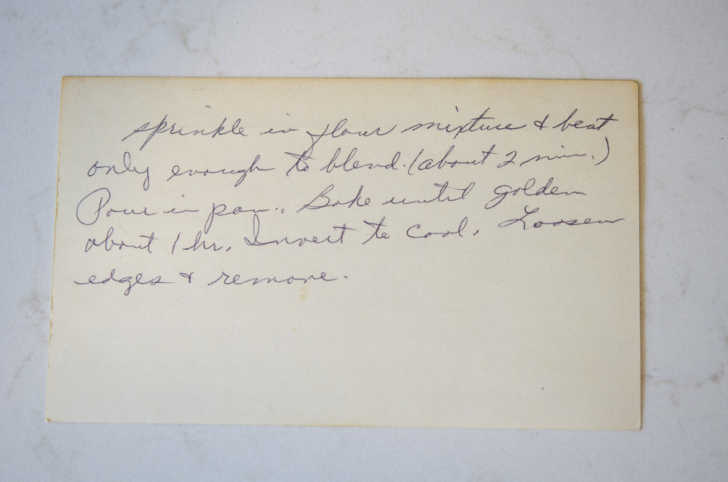 sprinkle in flour mixture & beat
only enough to blend. (about 2 min.)
Pour in pan. Bake until golden
about 1 hr. Invert to cool. Loosen
edges & remove.